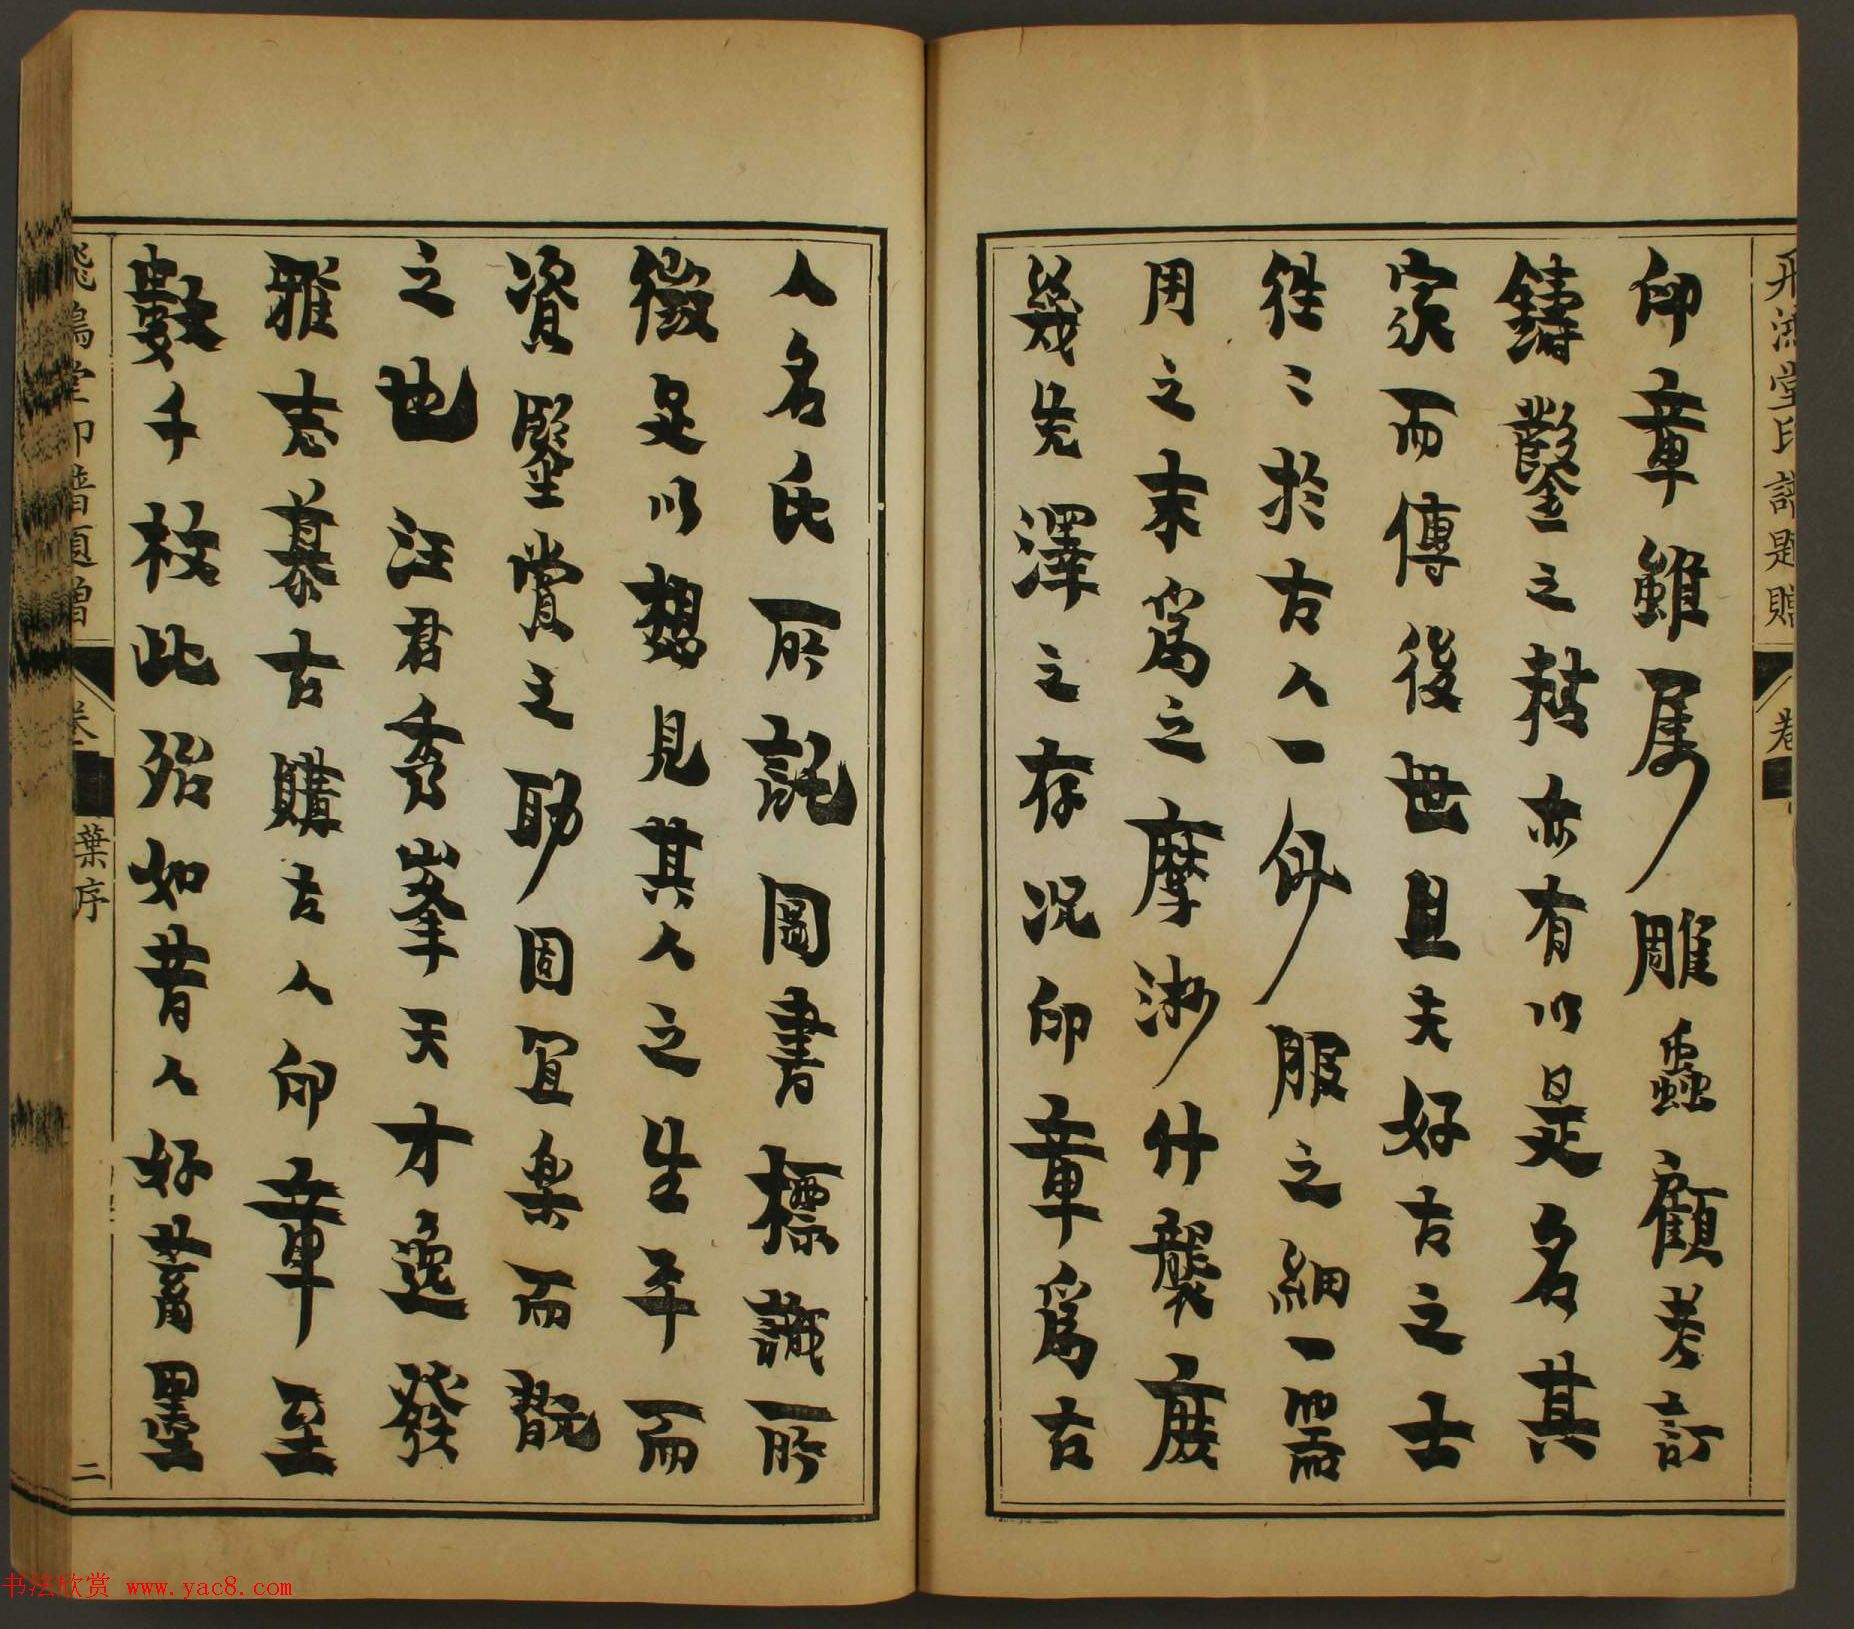 飛鴻堂印譜題贈 卷
印章雖属雕蟲顧考訂
鑄鑿之精亦有以是名其
家而傳後世且夫好古之士
徃〻於古人一服之細一器
用之末爲之摩沙什襲庶
幾先澤之存况印章爲古
人名氏所託圖書標識所
徵足以想見其人之生平而
資鑒賞之助固宜樂而翫
之也 汪君秀峯天才逸發
雅志慕古購古人印章至
數千枚此殆如昔人好蓄墨
飛鴻堂印譜題贈 卷 葉序 二
书法欣赏 www.yac8.com